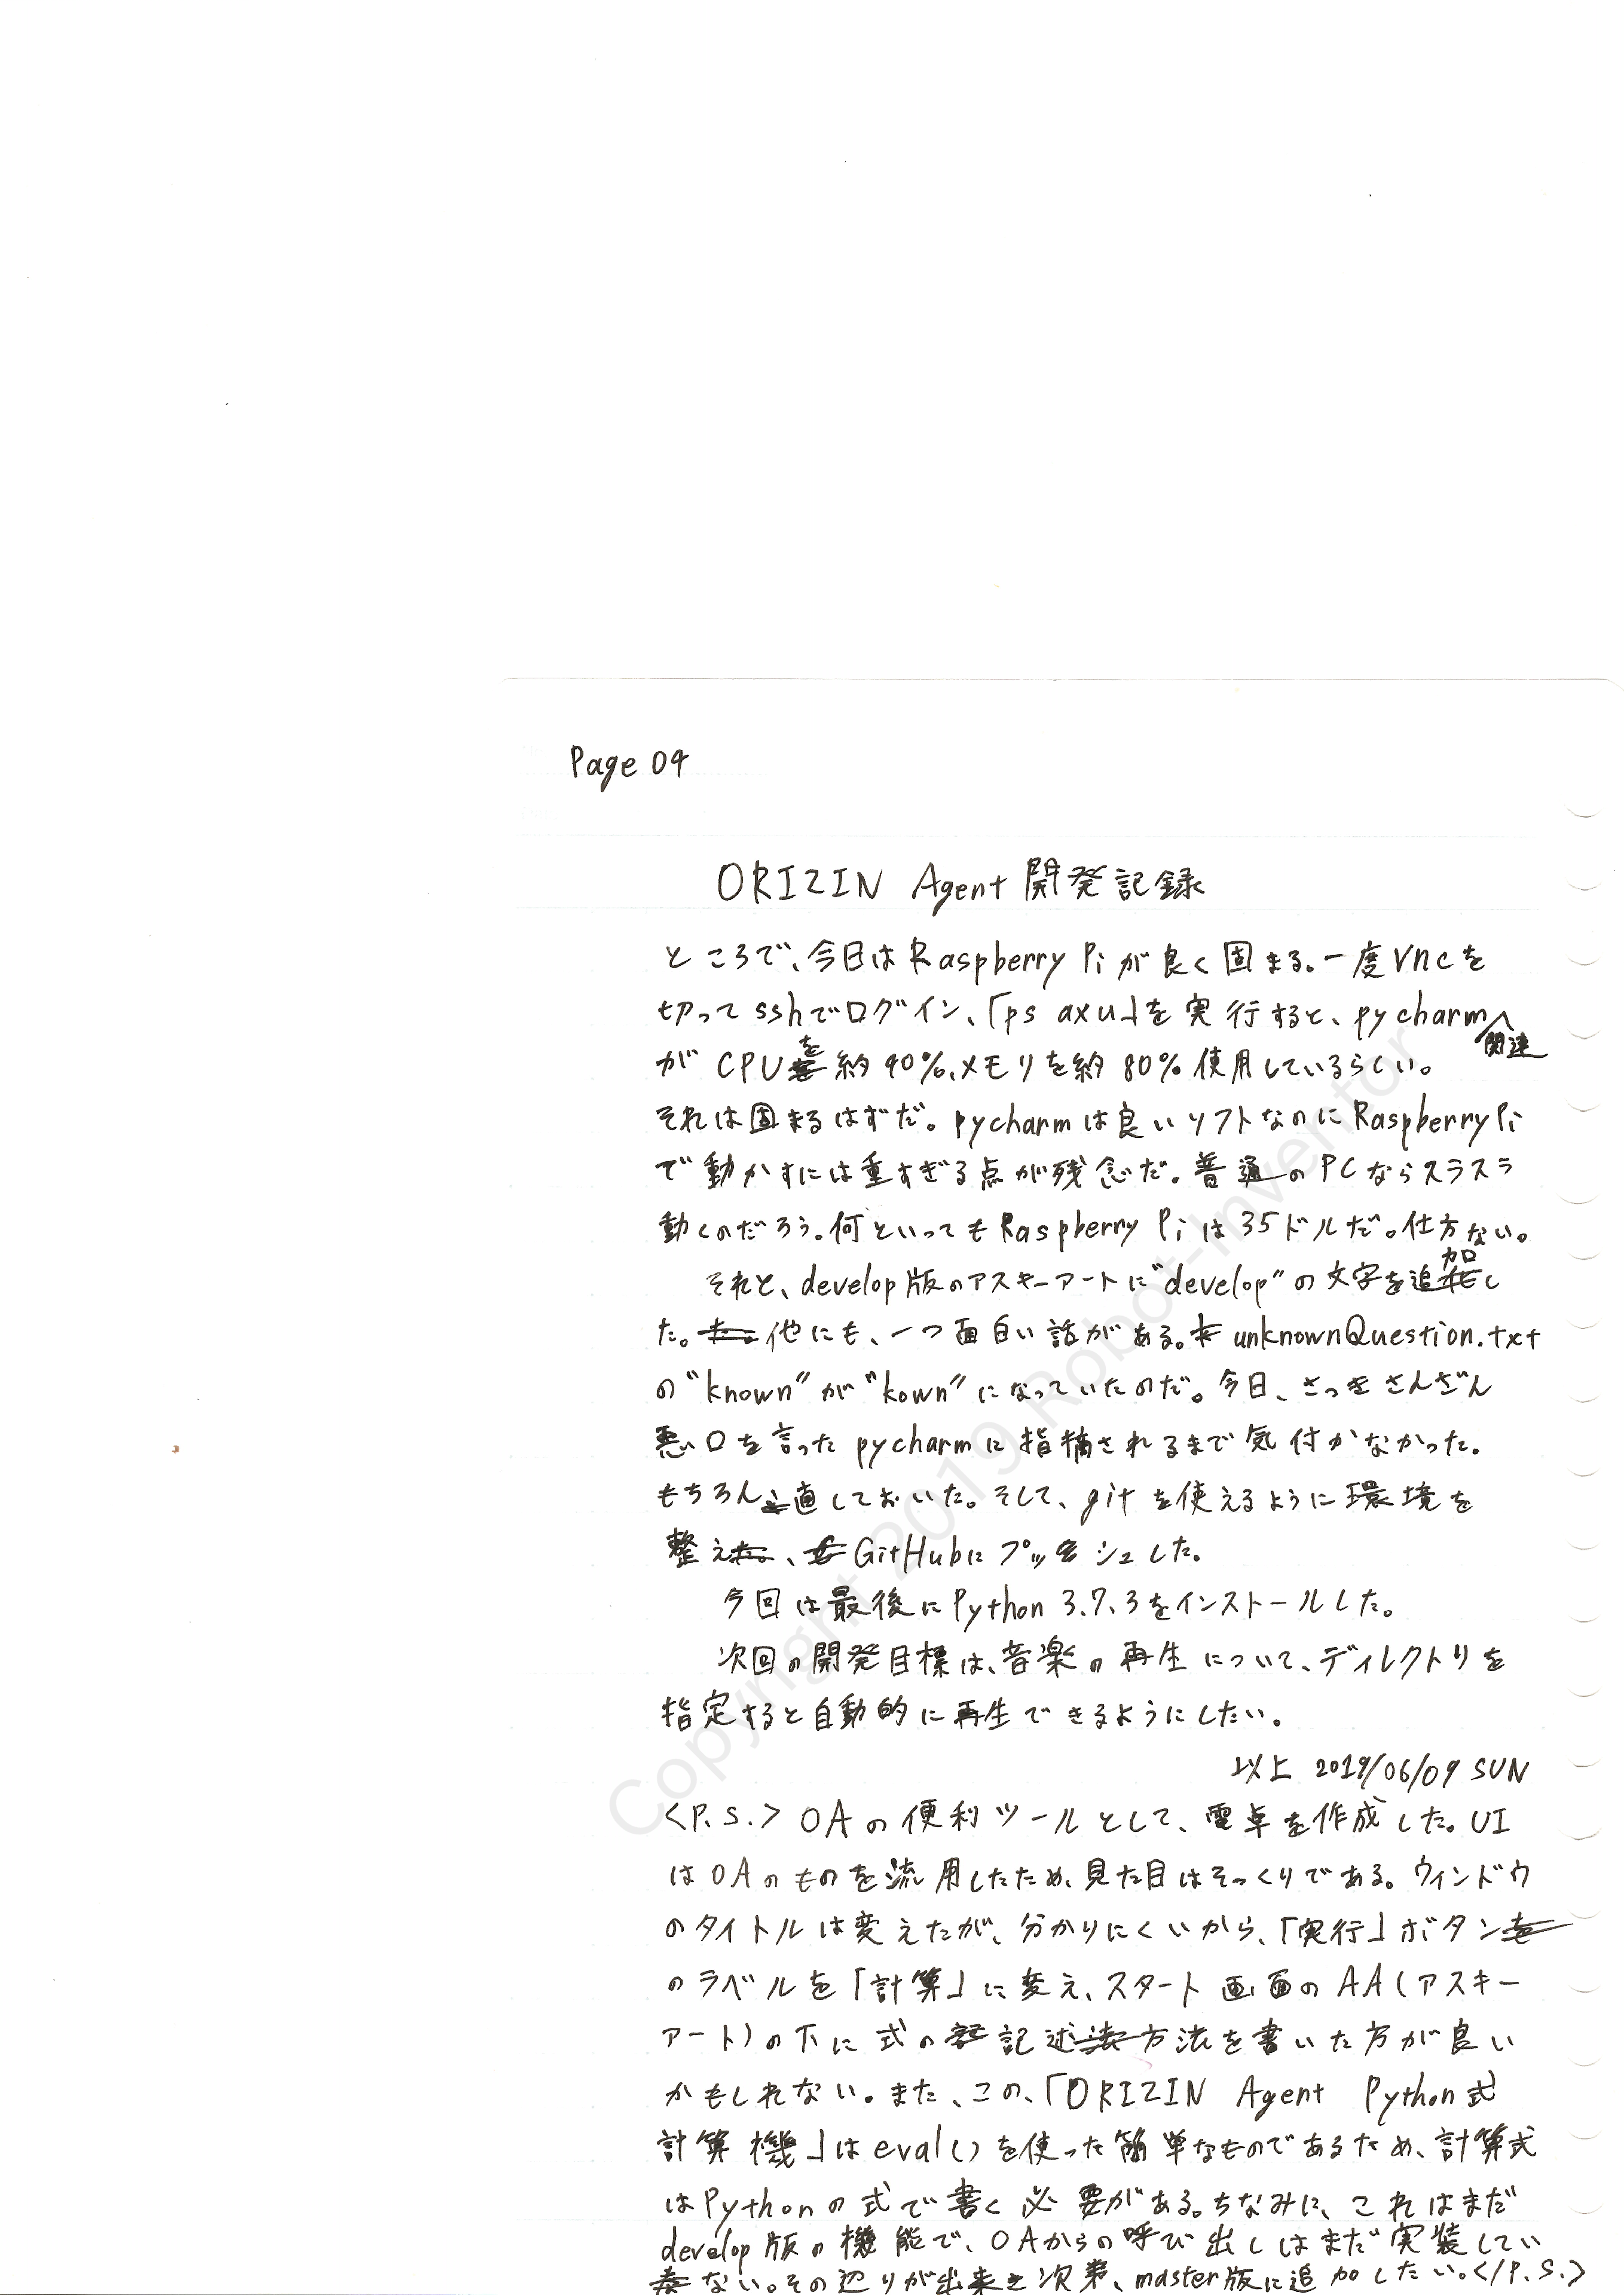 Page 04
ORIZIN Agent 開発記録
ところで、今日はRaspberry Piが良く固まる。一度vncを
切ってsshでログイン、「ps axu」を実行すると、pycharm関連
がCPUを約90%、メモリを約80%使用しているらしい。
それは固まるはずだ。pycharmは良いソフトなのにRaspberry Pi
で動かすには重すぎる点が残念だ。普通のPCならスラスラ
動くのだろう。何といってもRaspberry Piは35ドルだ。仕方ない。
それと、develop版のアスキーアートに"develop"の文字を追加し
た。他にも、一つ面白い話がある。unknownQuestion.txt
の"known"が"kown"になっていたのだ。今日、さっきさんざん
悪口を言ったpycharmに指摘されるまで気付かなかった。
もちろん直しておいた。そして、gitを使えるように環境を
整え、GitHubにプッシュした。
今回は最後にPython 3.7.3をインストールした。
次回の開発目標は、音楽の再生について、ディレクトリを
指定すると自動的に再生できるようにしたい。
以上 2019/06/09 SUN
<P.S.> OAの便利ツールとして、電卓を作成した。UI
はOAのものを流用したため、見た目はそっくりである。ウィンドウ
のタイトルは変えたが、分かりにくいから、「実行」ボタン
のラベルを「計算」に変え、スタート画面のAA(アスキー
アート)の下に式の記述方法を書いた方が良い
かもしれない。また、この、「ORIZIN Agent Python式
計算機」はeval()を使った簡単なものであるため、計算式
はPythonの式で書く必要がある。ちなみに、これはまだ
develop版の機能で、OAからの呼び出しはまだ実装してい
ない。その辺りが出来次第、master版に追加したい。</P.S.>
Copyright 2019 Robot-Inventor